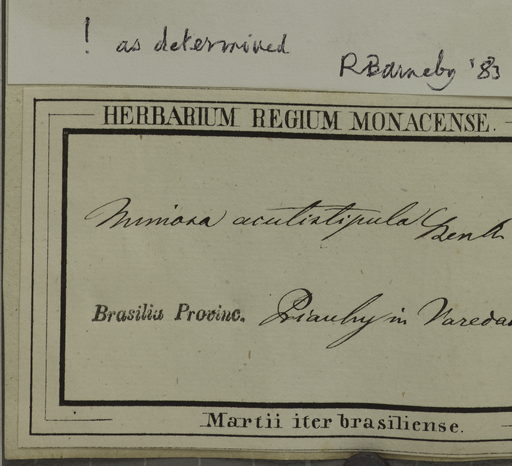 ! as determined
RBarneby '83
HERBARIUM REGIUM MONACENSE.
Mimosa acutistipula Benth
Brasilia Provinc. Piauhy in Vareda
Martii iter brasiliense.